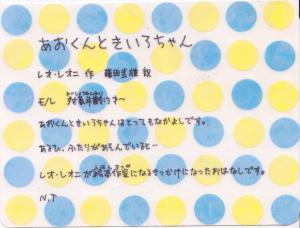 あおくんときいろちゃん
レオ・レオニ 作 藤田圭雄 訳
対象年齢 3才〜
あおくんときいろちゃんはとってもなかよしです。
あるひ、ふたりがあそんでいると…
レオ・レオニが絵本作家になるきっかけになったおはなしです。
N.T